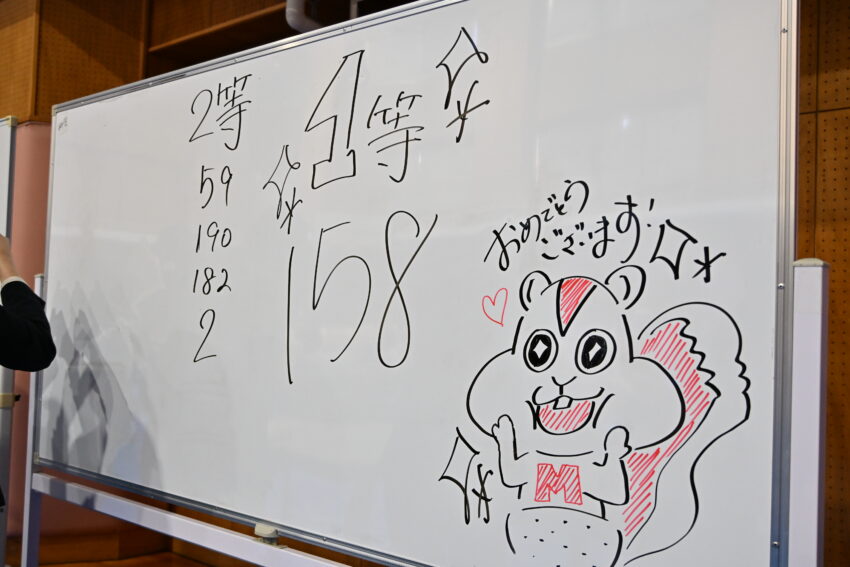 2等
59
190
182
2
1等
158
おめでとう
ございます!
M